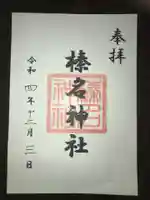 奉拝
榛名神社
令和四年十二月三日